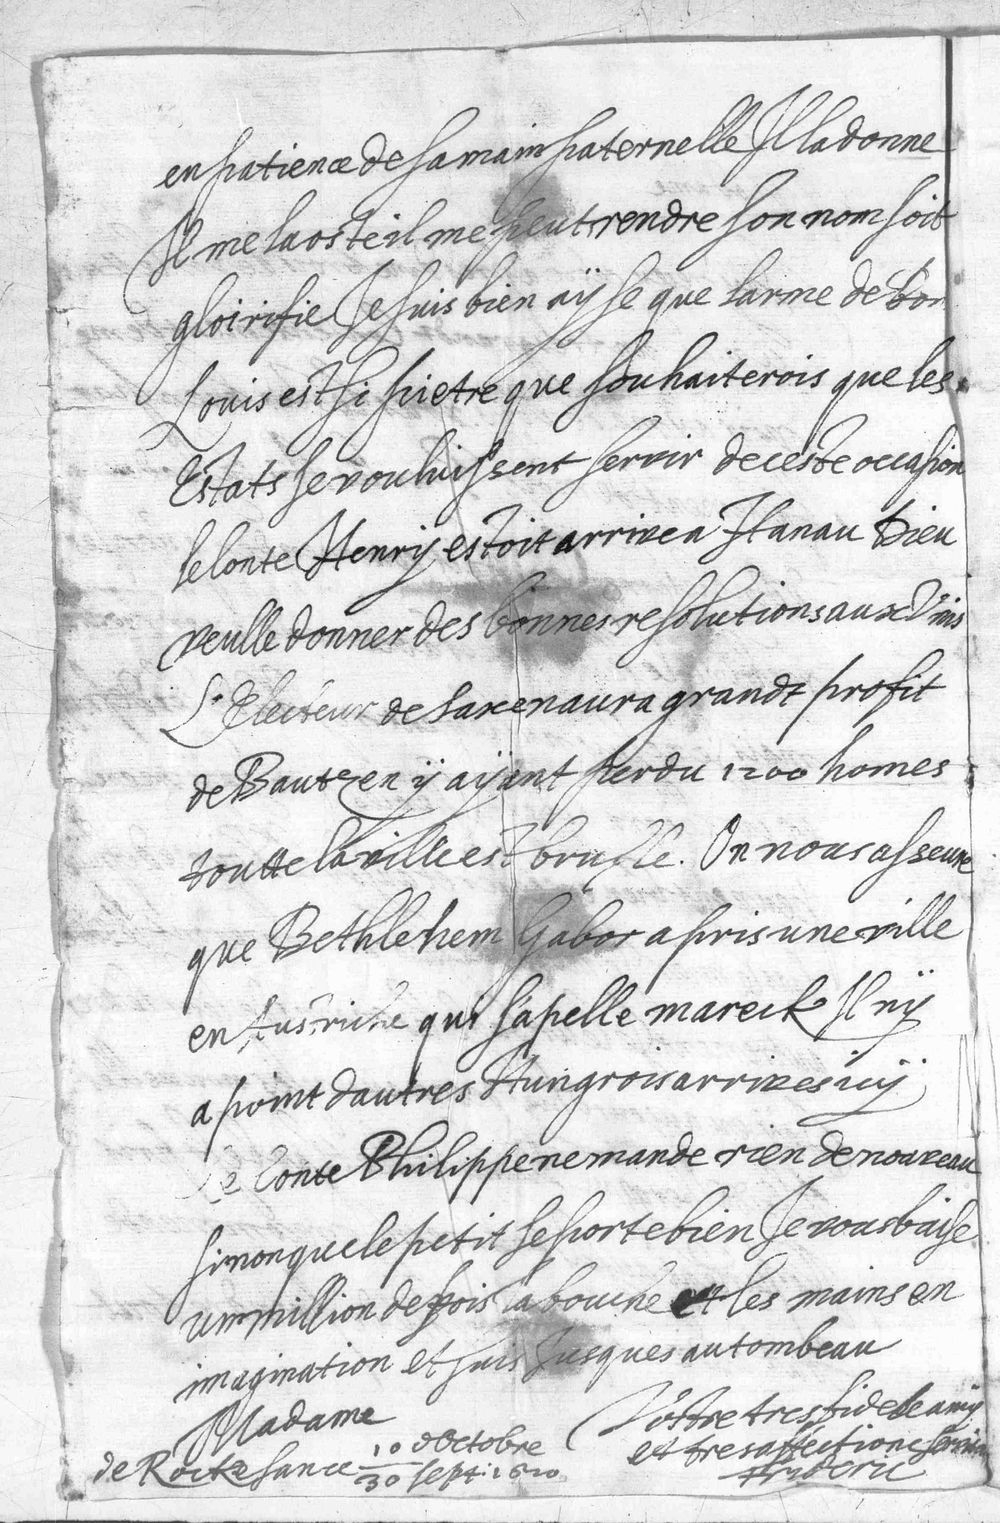 en patience de sa main paternelle Il la donne
Il me la oste il me peut rendre son nom soit
gloirifie Je suis bien ayse que larme de Don
Louis est si pietre que souhaiterois que les
Estats se voulussent servir de ceste occasion
le Conte Henry estoit arrive a Hanau Dieu
veulle donner des bonnes resolutions aux Unis
L'Electeur de Saxe naura grandt profit
de Bautzen ÿ aÿant perdu 1200 homes
toutte la ville est bruslé. On nous asseure
que Bethlehem Gabor a pris une ville
en Austriche qui sapelle mareck Il nÿ
a point dautres Hungrois arrives icÿ
Le Conte Philippe ne mande rien de noaveau
sinon que le petit se porte bien Je vous baise
un million de fois la bouche et les mains en
imagination et suis Jusques au tombeau
Madame
Vostre tres fidele amy
et tres affectione serviteur
Frideric
de Rockesance 10 dOctobre
30 Sept: 1620